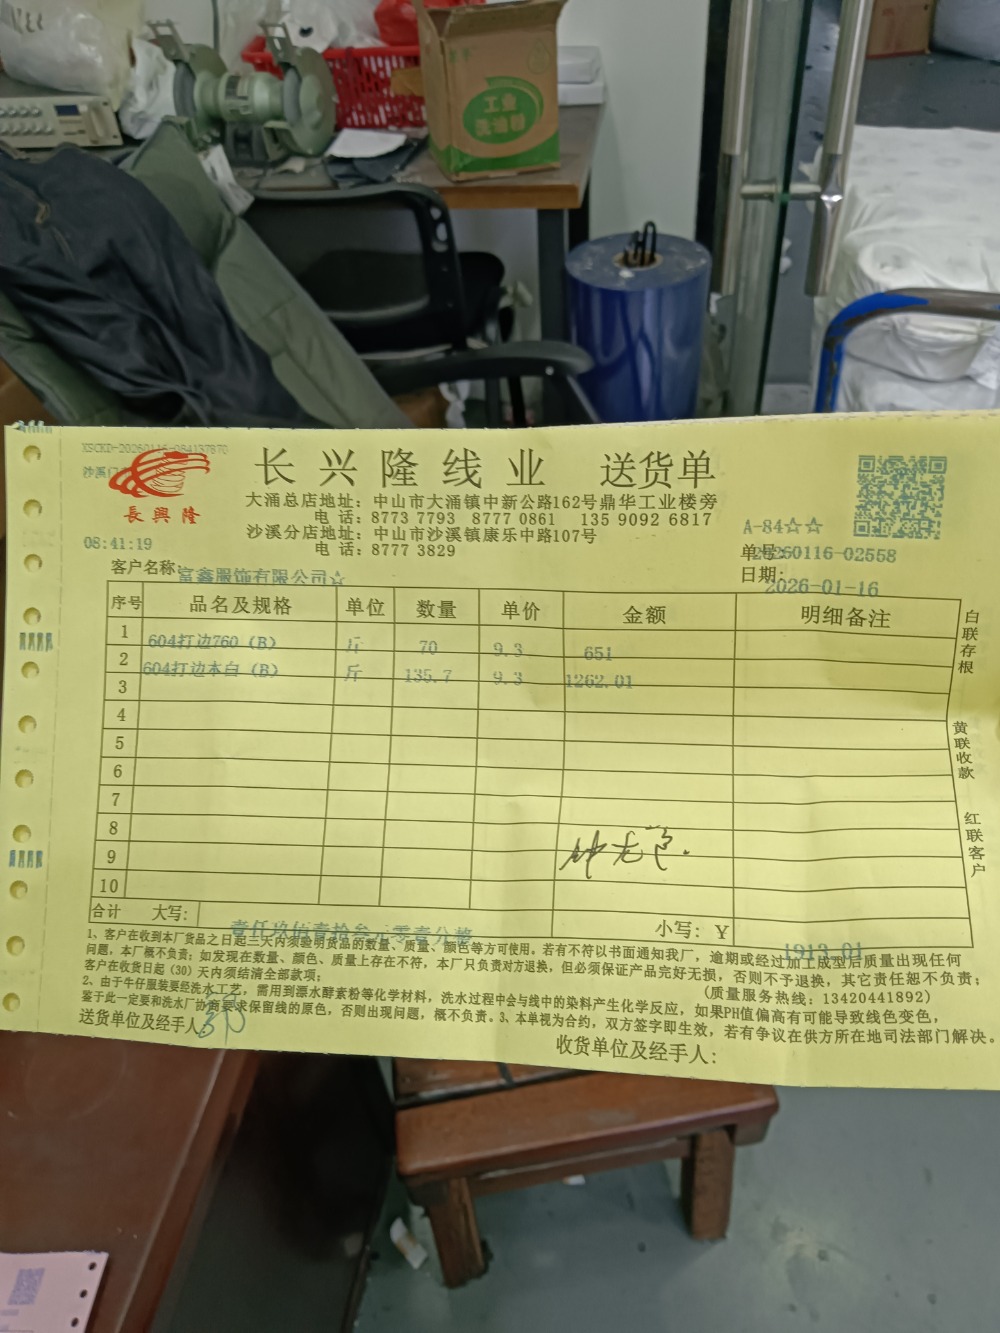 工业
洗油粉
XSCKD-20260116-084137870
沙溪门
長興隆
长兴隆线业 送货单
大涌总店地址：中山市大涌镇中新公路162号鼎华工业楼旁
电 话：8773 7793 8777 0861 135 9092 6817
沙溪分店地址：中山市沙溪镇康乐中路107号
电 话：8777 3829
A-84☆☆
08:41:19
单号：20260116-02558
客户名称：富鑫服饰有限公司☆
日期：2026-01-16
序号 品名及规格 单位 数量 单价 金额 明细备注
1 604打边760（B） 斤 70 9.3 651
2 604打边本白（B） 斤 135.7 9.3 1262.01
3
4
5
6
7
8
9
10
合计 大写： 壹仟玖佰壹拾叁元零壹分整 小写：Y 1913.01
白联存根
黄联收款
红联客户
1、客户在收到本厂货品之日起三天内须验明货品的数量、质量、颜色等方可使用。若有不符以书面通知我厂，逾期或经过加工成型后质量出现任何
问题，本厂概不负责；如发现在数量、颜色、质量上存在不符，本厂只负责对方退换，但必须保证产品完好无损，否则不予退换，其它责任恕不负责；
客户在收货日起（30）天内须结清全部款项； （质量服务热线：13420441892）
2、由于牛仔服装要经洗水工艺，需用到漂水酵素粉等化学材料，洗水过程中会与线中的染料产生化学反应，如果PH值偏高有可能导致线色变色，
鉴于此一定要和洗水厂协商要求保留线的原色，否则出现问题，概不负责。3、本单视为合约，双方签字即生效，若有争议在供方所在地司法部门解决。
送货单位及经手人：
收货单位及经手人：